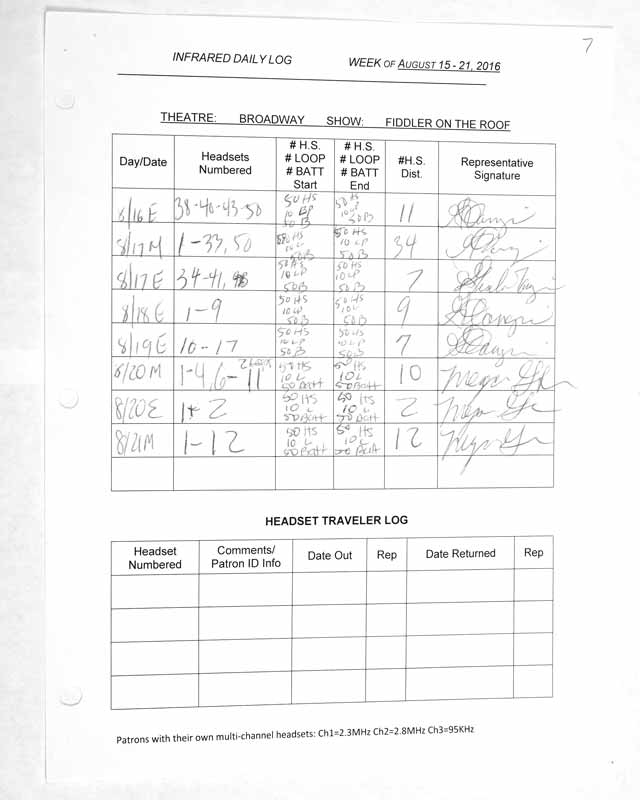 7
INFRARED DAILY LOG WEEK OF AUGUST 15 - 21, 2016
THEATRE: BROADWAY SHOW: FIDDLER ON THE ROOF
Day/Date Headsets Numbered # H.S. # LOOP # BATT Start # H.S. # LOOP # BATT End #H.S. Dist. Representative Signature
8/16 E 38-40-43-50 50 HS 10 LP 50 B 50 HS 10 LP 50 B 11
8/17 M 1-33, 50 50 HS 10 L 50 B 50 HS 10 LP 50 B 34
8/17 E 34-41, 50 HS 10 LP 50 B 50 HS 10 LP 50 B 7
8/18 E 1-9 50 HS 10 LP 50 B 50 HS 10 L 50 B 9
8/19 E 10-17 50 HS 10 LP 50 B 50 HS 10 LP 50 B 7
8/20 M 1-4, 6-11 2 Loops 50 HS 10 L 50 Batt 50 HS 10 L 50 Batt 10
8/20 E 1+2 50 HS 10 L 50 Batt 50 HS 10 L 50 Batt 2
8/21 M 1-12 50 HS 10 L 50 Batt 50 HS 10 L 50 Batt 12
HEADSET TRAVELER LOG
Headset Numbered Comments/ Patron ID Info Date Out Rep Date Returned Rep
Patrons with their own multi-channel headsets: Ch1=2.3MHz Ch2=2.8MHz Ch3=95KHz